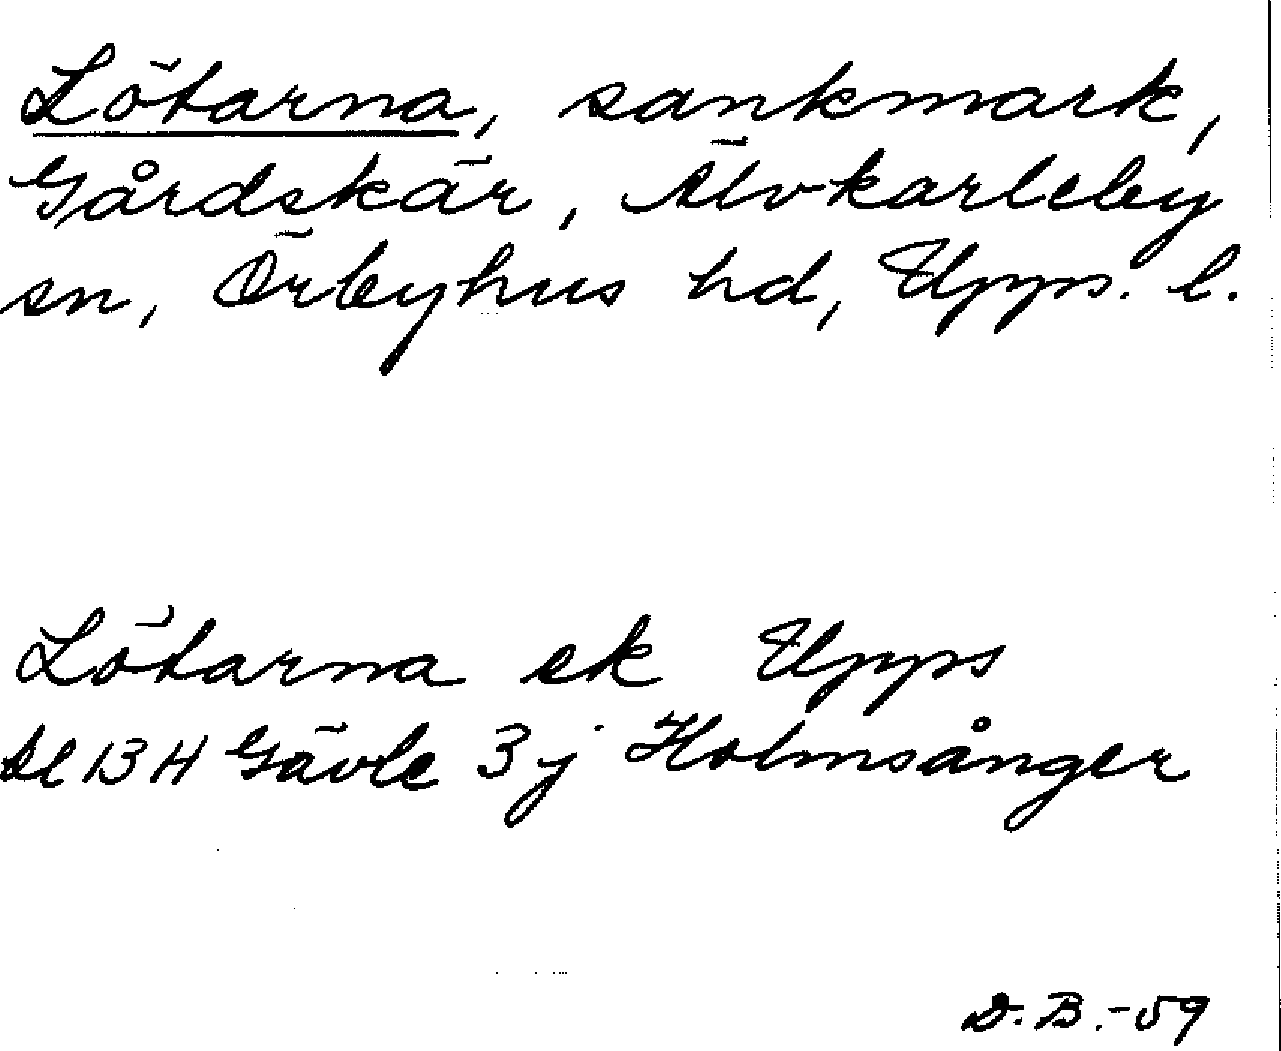 Lötarna, sankmark,
Gårdskär, Älvkarleby
sn, Örbyhus hd, Upps. l.
Lötarna ek Upps
bl 13 H Gävle 3 j Holmsånger
D. B. -59